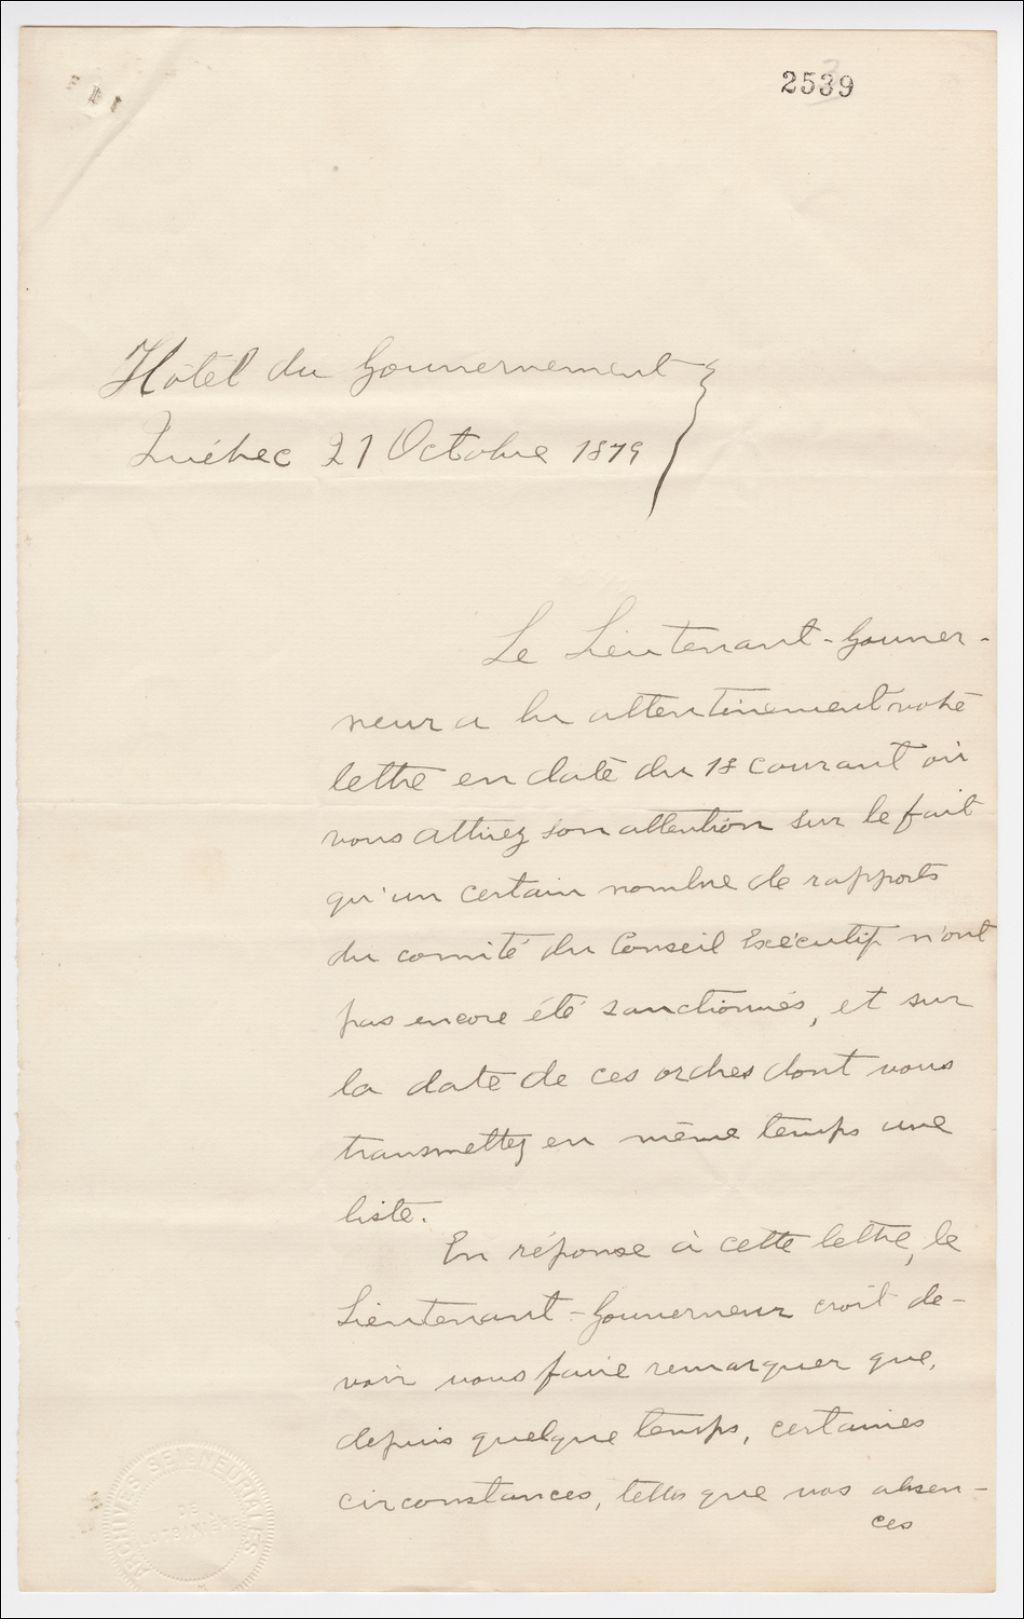 2539
Hôtel du Gouvernement
Québec 21 Octobre 1879
Le Lieutenant-Gouver-
neur a lu attentivement votre
lettre en date du 18 courant où
vous attirez son attention sur le fait
qu'un certain nombre de rapports
du comité du Conseil Exécutif n'ont
pas encore été sanctionnés, et sur
la date de ces ordres dont vous
transmettez en même temps une
liste.
En réponse à cette lettre, le
Lieutenant-Gouverneur croit de-
voir vous faire remarquer que,
depuis quelque temps, certaines
circonstances, telles que vos absen-
ces
ARCHIVES SEIGNEURIALES
DE
LOTBINIÈRE